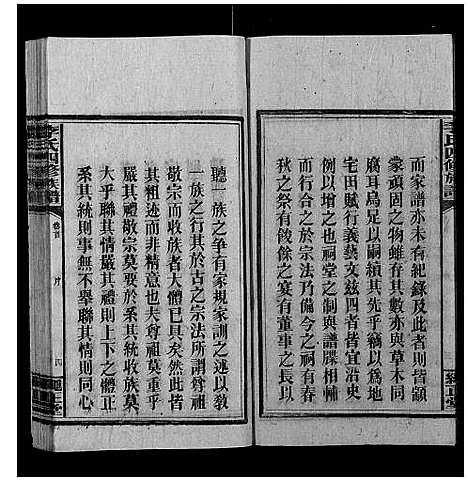 而家譜亦未有紀錄及此者則皆顓
蒙頑固之物雖存其數亦與草木同
腐耳烏足以嗣續其先乎竊以為地
宅田賦行義藝文茲四者皆宜沿史
例以增之也祠堂之制與譜牒相輔
而行合之於宗法乃備今之祠有春
秋之祭有餕餘之宴有董事之長以
聽一族之爭有家規家訓之述以教
一族之行其於古之宗法所謂尊祖
敬宗而收族者大體已具矣然此皆
其粗迹而非精意也夫尊祖莫重乎
嚴其禮敬宗莫要於系其統收族莫
大乎聯其情嚴其禮則上下之體正
系其統則事無不舉聯其情則同心
李氏四修族譜
卷首
序
四